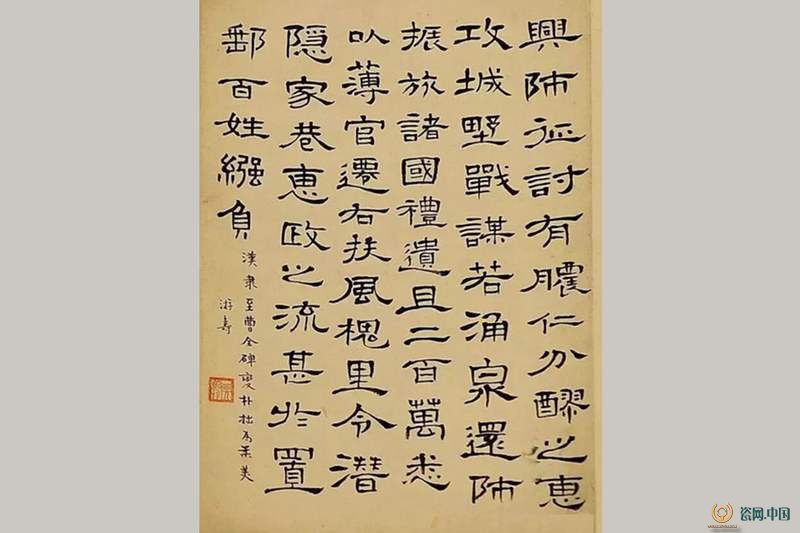 興師征討有膿仁分醪之惠
攻城墅戰謀若涌泉還師
振旅諸國禮遺且二百萬悉
以薄官遷右扶風槐里令潛
隱家巷惠政之流甚於置
郵百姓繦負
漢隶至曹全碑變朴拙为柔美
游壽
瓷网.中国